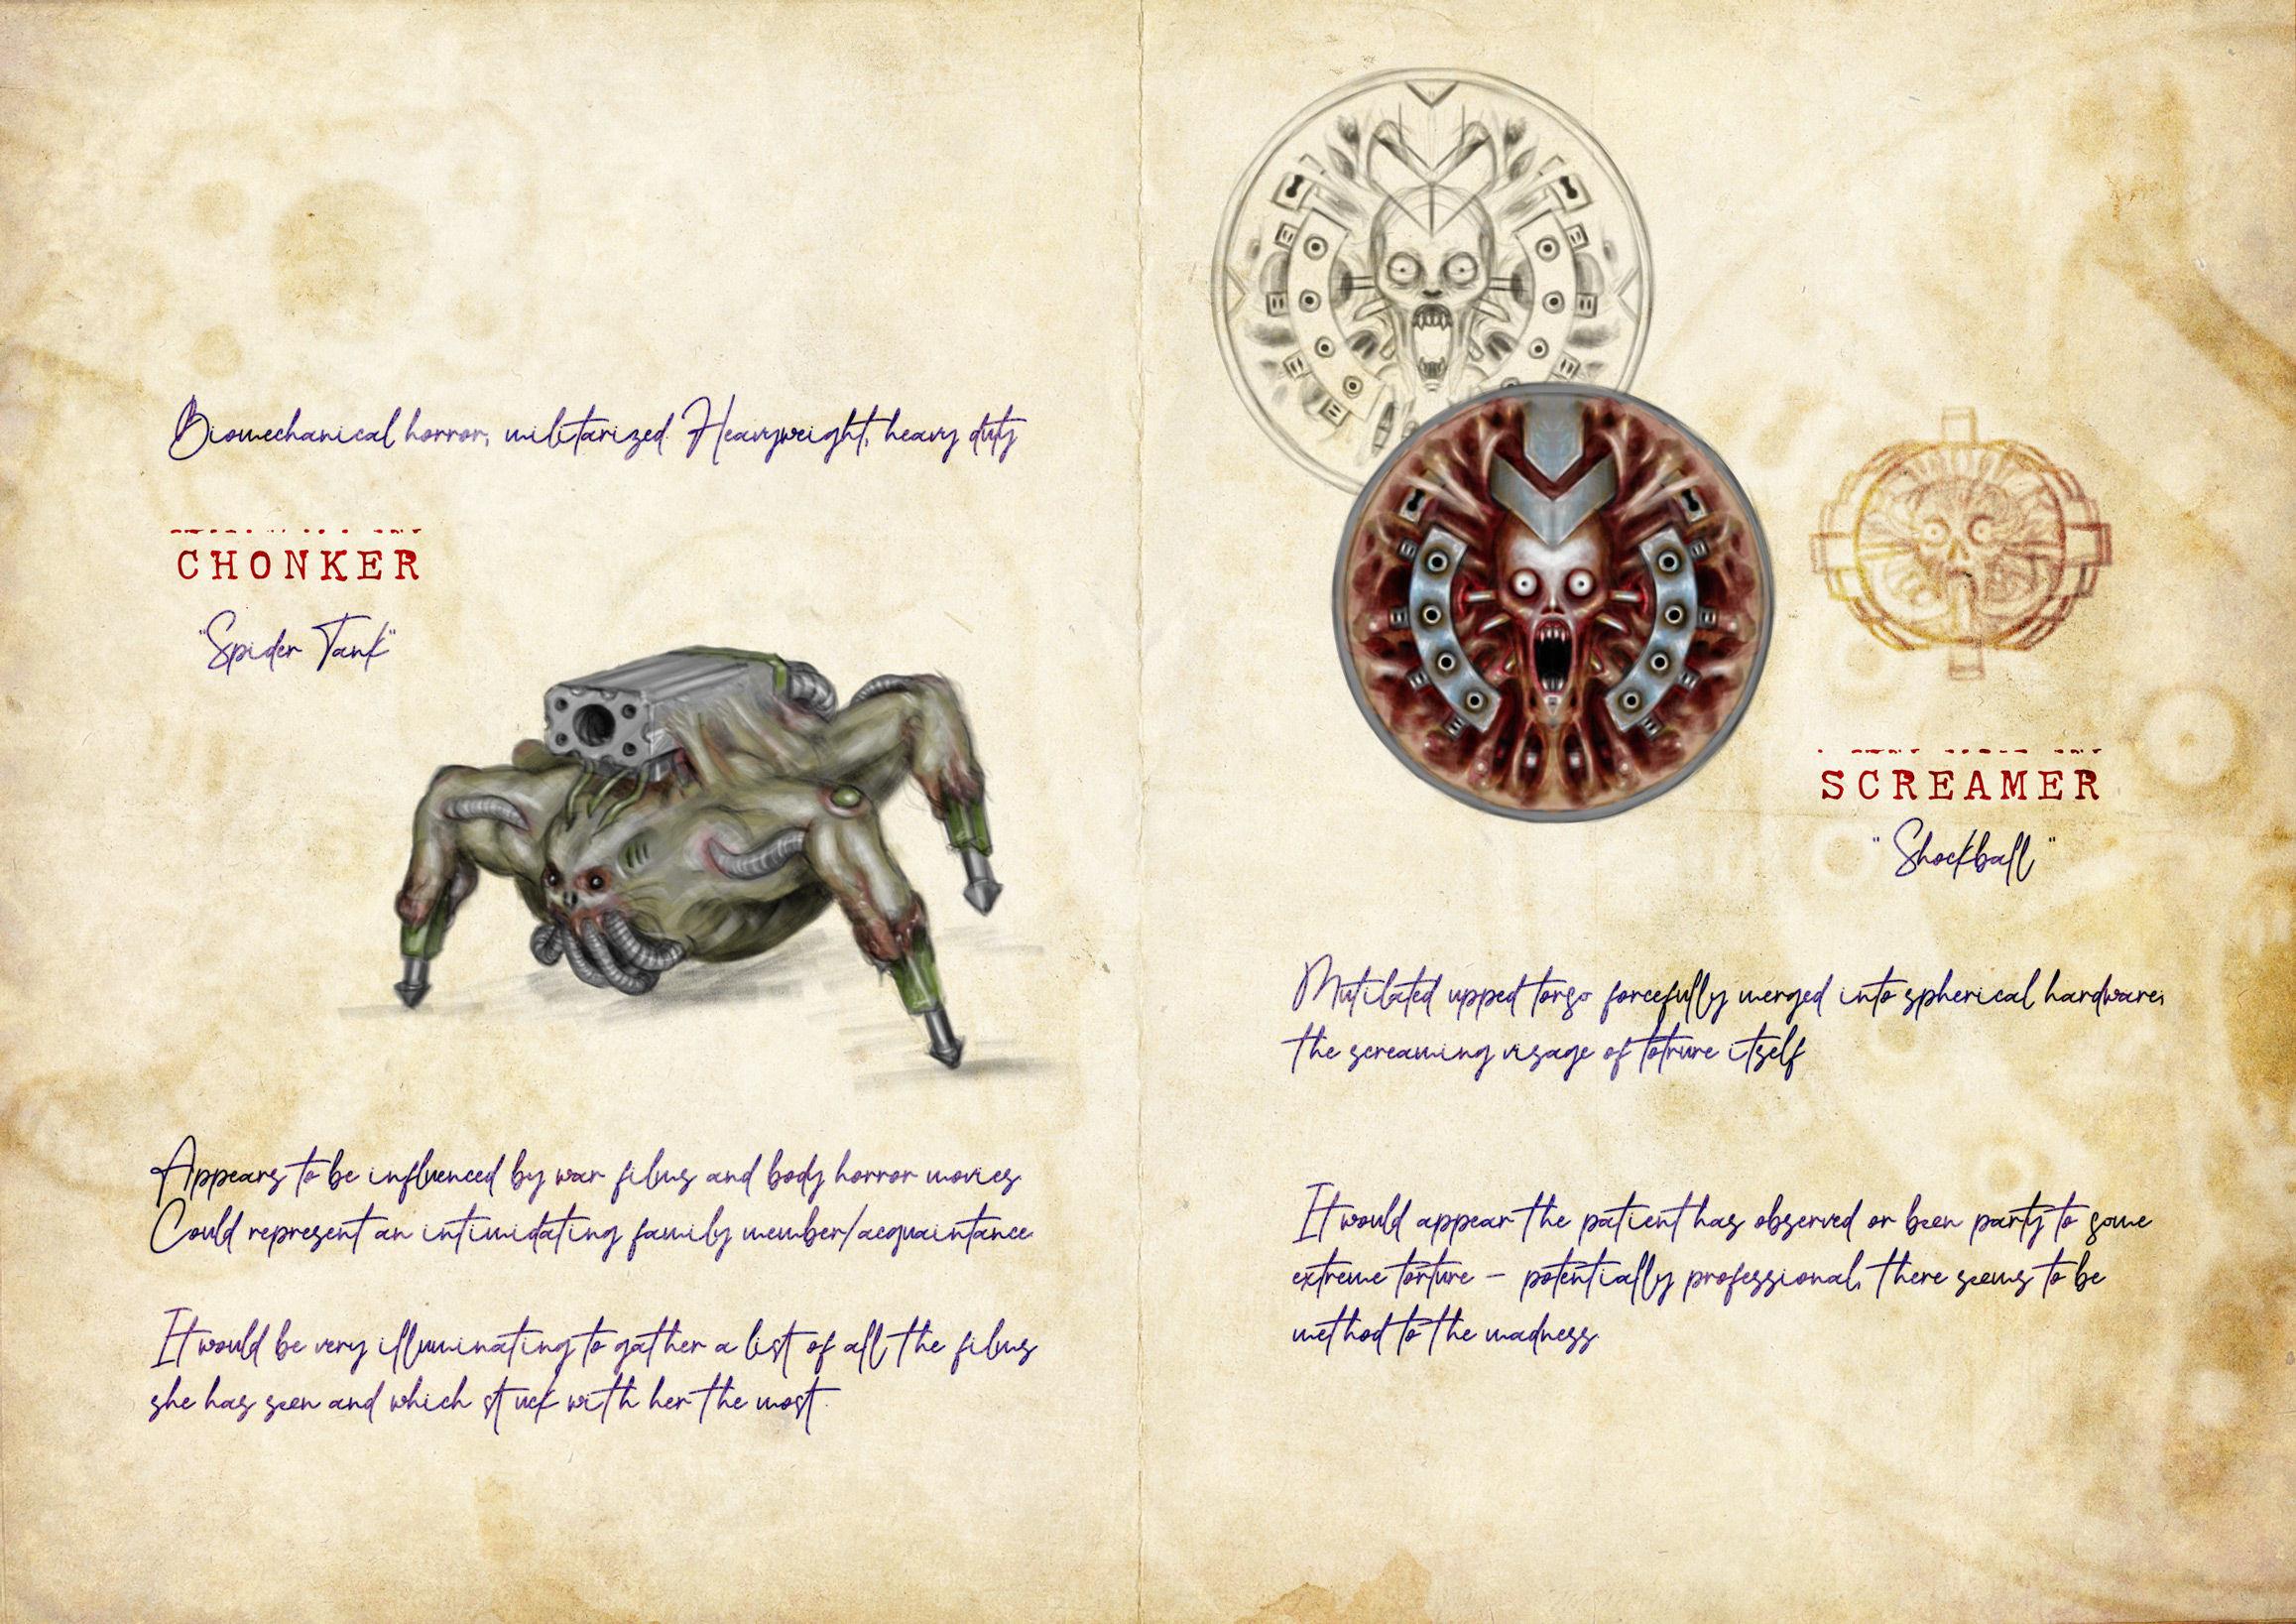 Biomechanical horror, militarized. Heavyweight, heavy duty
CHONKER
"Spider Tank"
Appears to be influenced by war films and body horror movies.
Could represent an intimidating family member/acquaintance.
It would be very illuminating to gather a list of all the films
she has seen and which stuck with her the most.
SCREAMER
"Shockball"
Mutilated upped torso forcefully merged into spherical hardware,
the screaming visage of totrure itself
It would appear the patient has observed or been party to some
extreme torture - potentially professional, there seems to be
method to the madness.